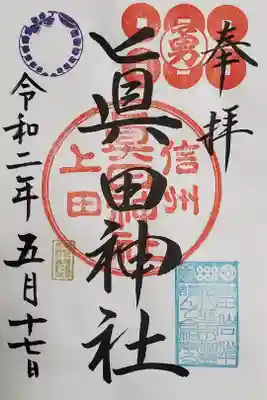 奉拝
勇
眞田神社
信州
上田
令和二年五月十七日